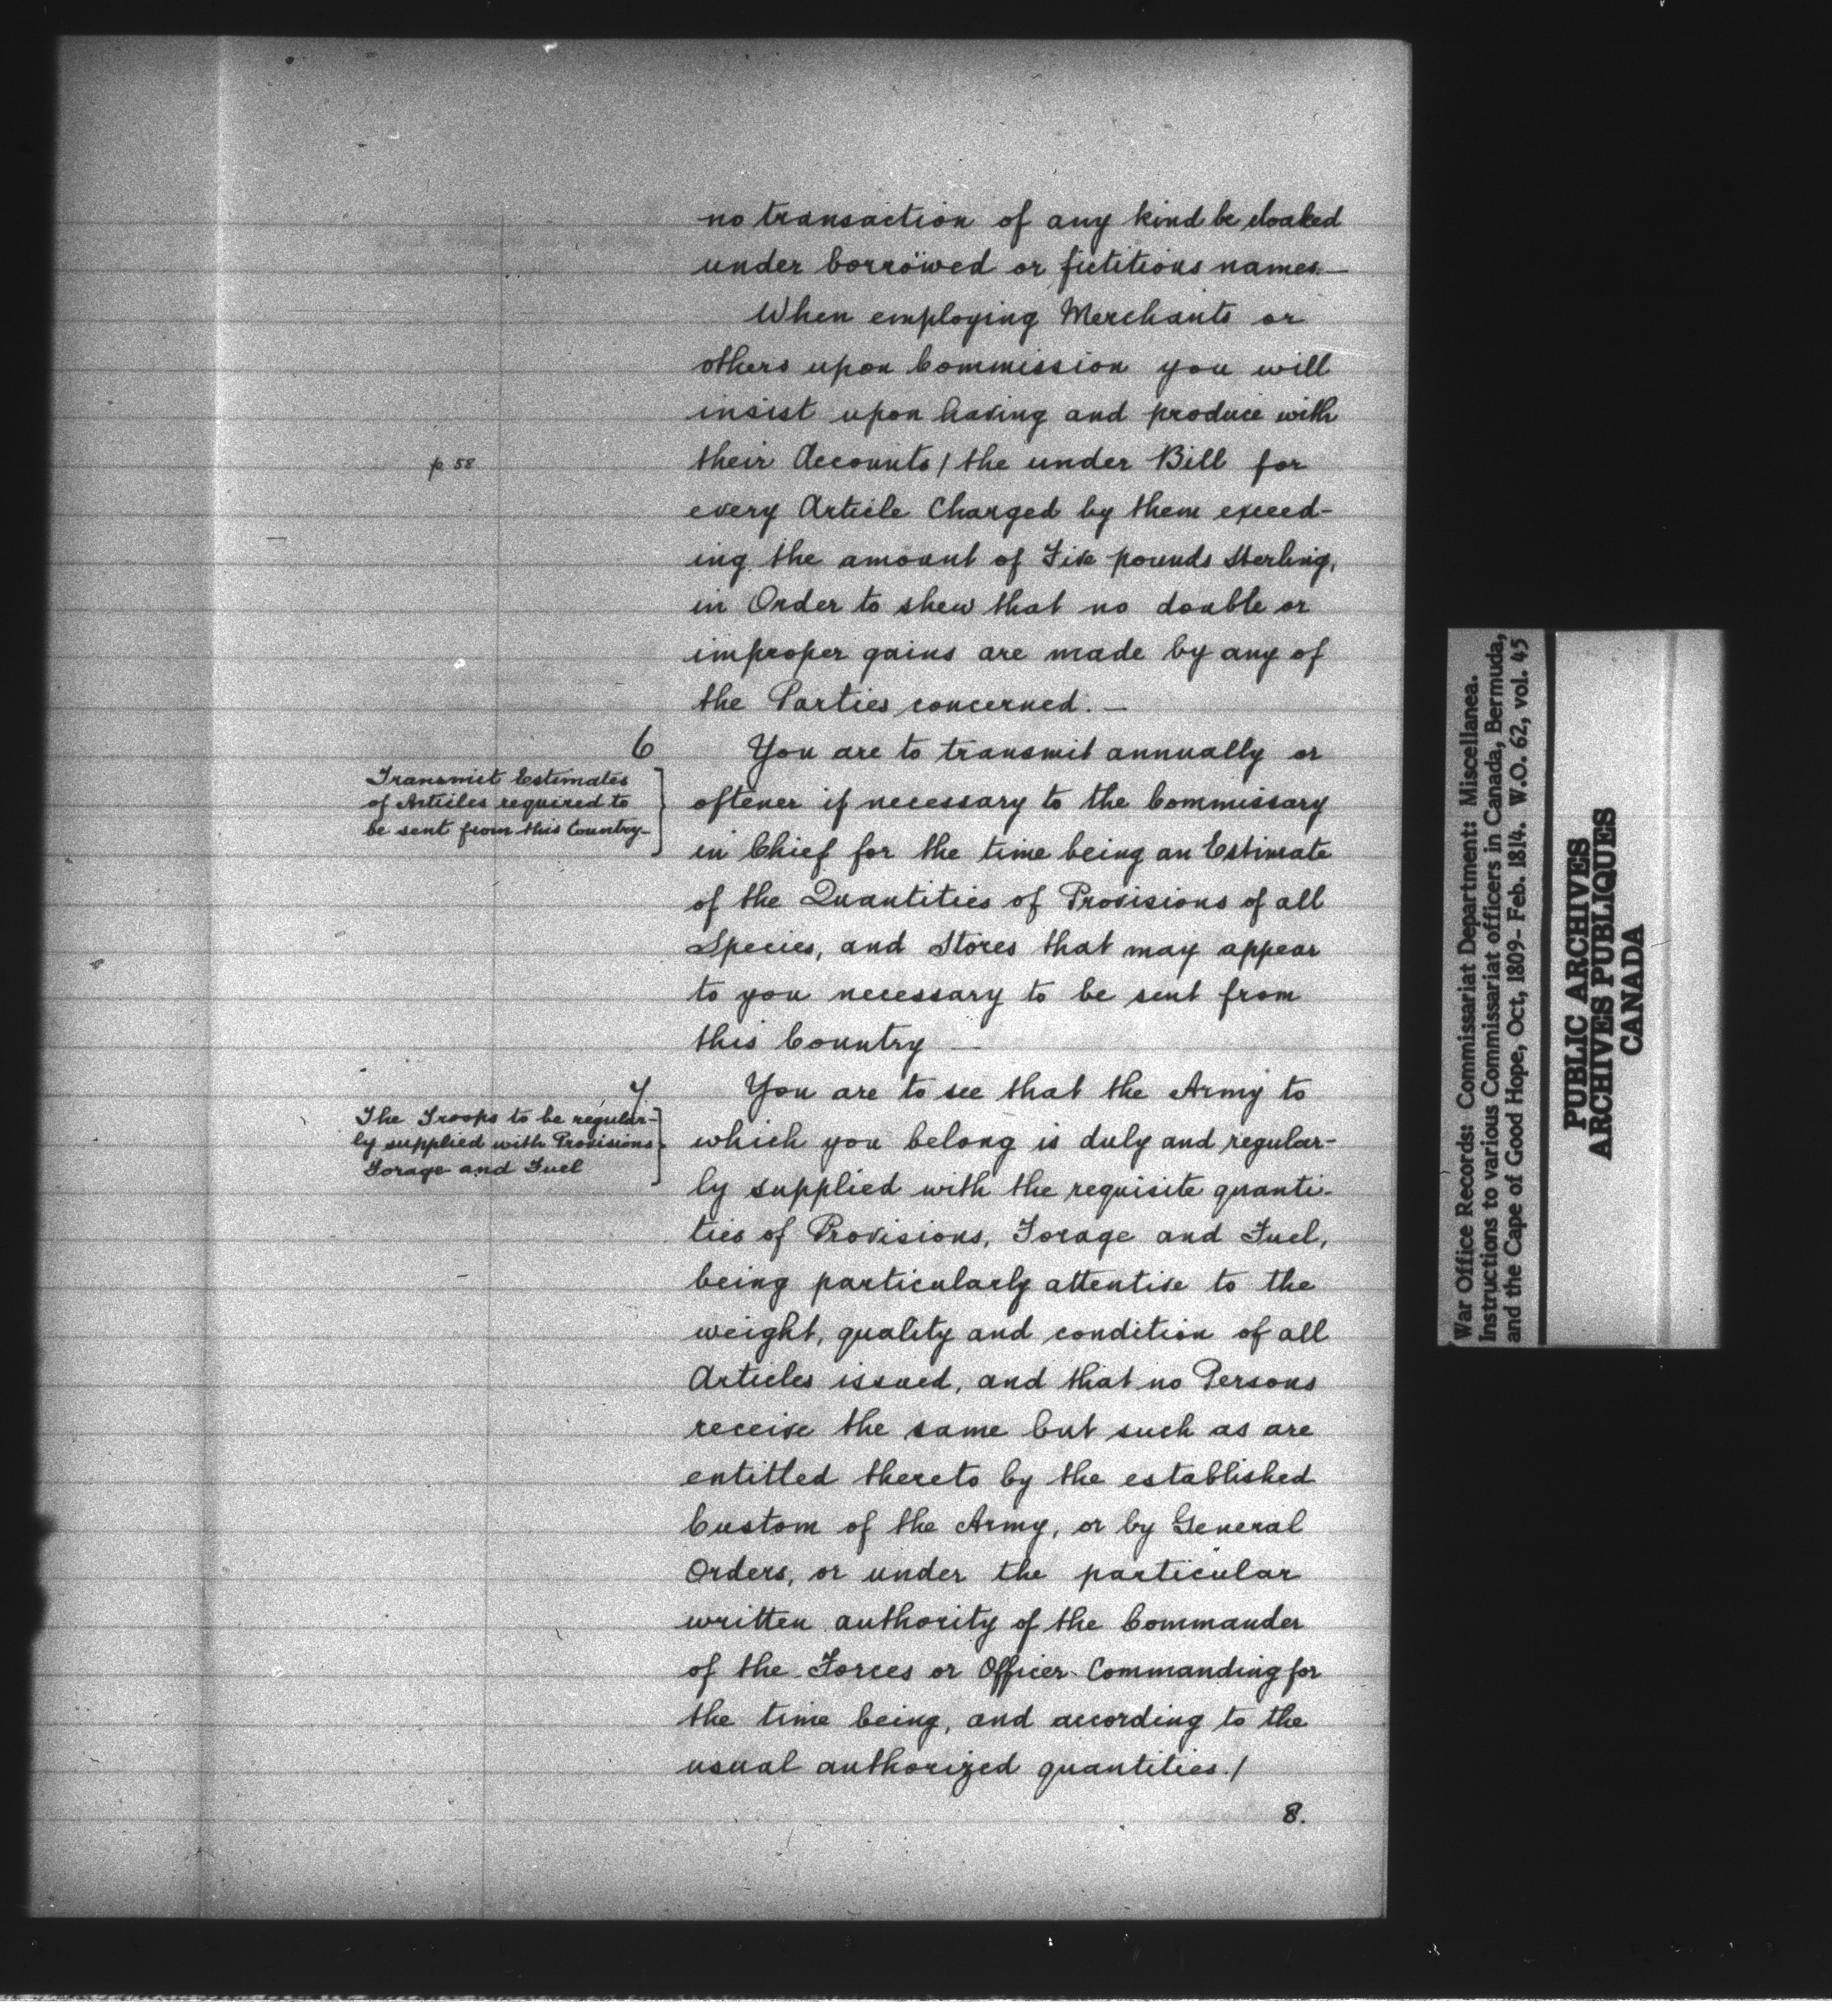 no transaction of any kind be cloaked
under borrowed or fictitious names —
When employing Merchants or
others upon Commission you will
insist upon having and produce with
p 58
their Accounts / the under Bill for
every Article Charged by them exceed-
ing the amount of Five pounds Sterling,
in Order to shew that no double or
improper gains are made by any of
the Parties concerned. —
6
Transmit Estimates
of Articles required to
be sent from this Country —
You are to transmit annually or
oftener if necessary to the Commissary
in Chief for the time being an Estimate
of the Quantities of Provisions of all
Species, and Stores that may appear
to you necessary to be sent from
this Country —
7
The Troops to be regular-
ly supplied with Provisions
Forage and Fuel
You are to see that the Army to
which you belong is duly and regular-
ly supplied with the requisite quanti-
ties of Provisions, Forage and Fuel,
being particularly attentive to the
weight, quality and condition of all
Articles issued, and that no Persons
receive the same but such as are
entitled thereto by the established
Custom of the Army, or by General
Orders, or under the particular
written authority of the Commander
of the Forces or Officer Commanding for
the time being, and according to the
usual authorized quantities. /
8.
War Office Records: Commissariat Department: Miscellanea.
Instructions to various Commissariat officers in Canada, Bermuda,
and the Cape of Good Hope, Oct, 1809- Feb. 1814. W.O. 62, vol. 45
PUBLIC ARCHIVES
ARCHIVES PUBLIQUES
CANADA